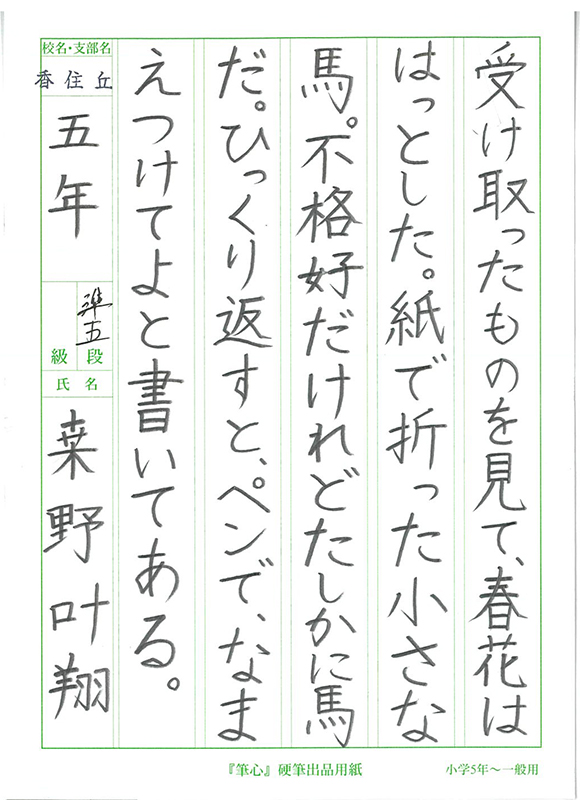 受け取ったものを見て、春花は
はっとした。紙で折った小さな
馬。不格好だけれどたしかに馬
だ。ひっくり返すと、ペンで、なま
えつけてよと書いてある。
校名・支部名
香住丘
五年
準五
段
級
氏名
桒野叶翔
『筆心』硬筆出品用紙
小学5年〜一般用